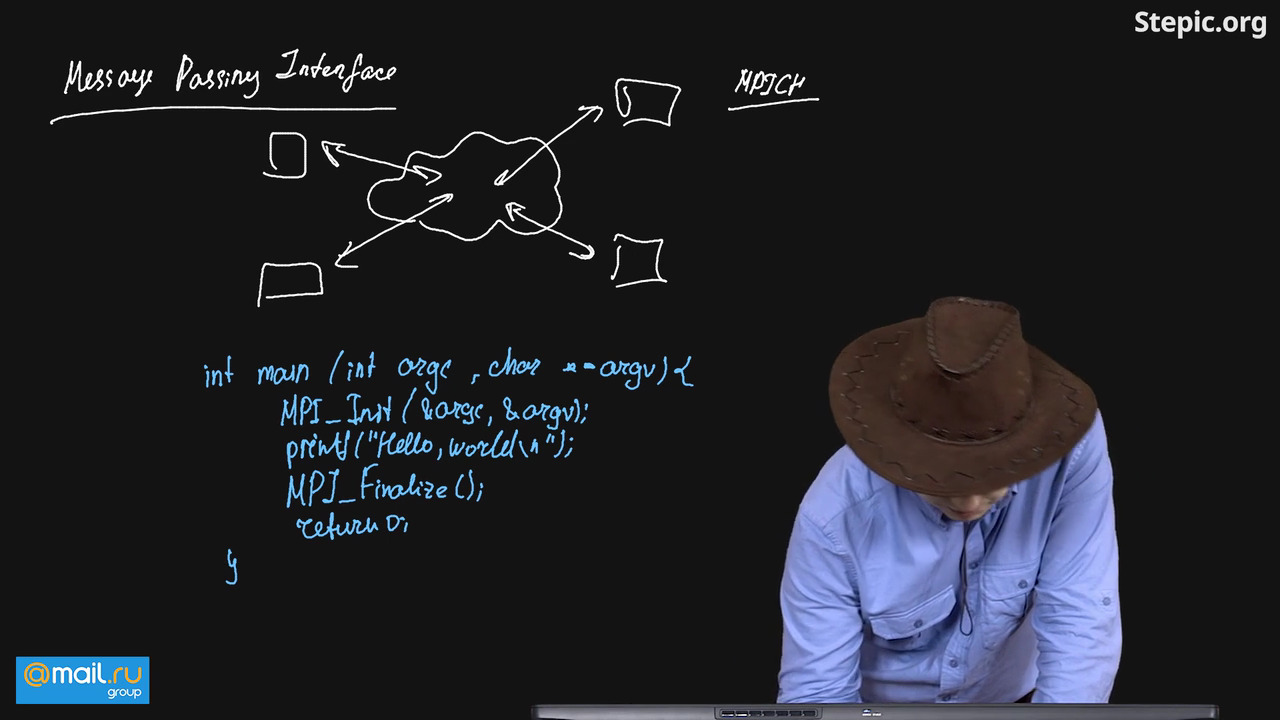 Stepic.org
Message Passing Interface
MPICH
int main (int argc, char **argv) {
MPI_Init (&argc, &argv);
printf ("Hello, world\n");
MPI_Finalize ();
return 0;
}
@mail.ru
group